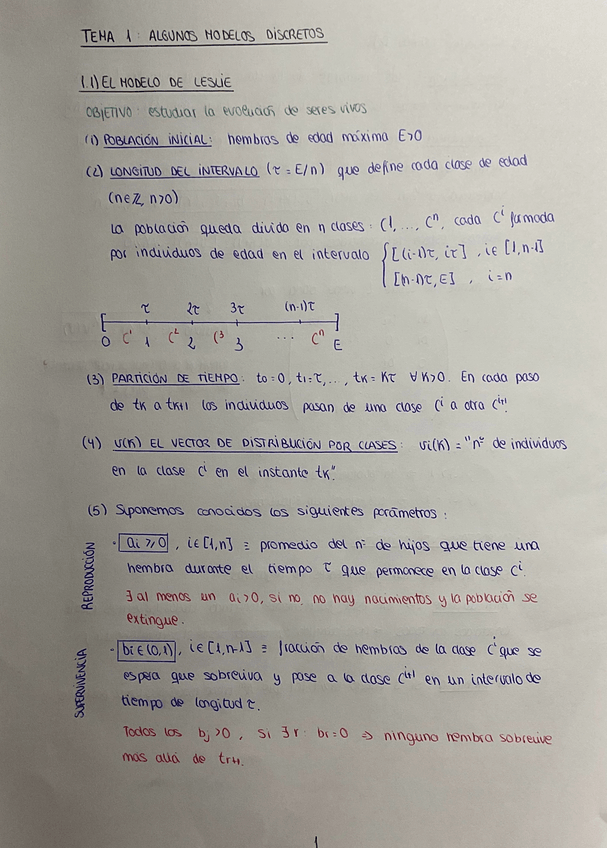 TEMA 1: ALGUNOS MODELOS DISCRETOS
1.1) EL MODELO DE LESLIE
OBJETIVO: estudiar la evolución de seres vivos
(1) POBLACIÓN INICIAL: hembras de edad máxima E>0
(2) LONGITUD DEL INTERVALO (τ = E/n) que define cada clase de edad
(n∈ℤ, n>0)
La población queda divido en n clases: C¹, ..., Cⁿ, cada Cⁱ formada
por individuos de edad en el intervalo { [(i-1)τ, iτ] , i∈[1,n-1]
[(n-1)τ, E] , i=n
τ 2τ 3τ (n-1)τ
0 C¹ 1 C² 2 C³ 3 ... Cⁿ E
(3) PARTICIÓN DE TIEMPO: t0=0, t1=τ, ..., tK=Kτ ∀K>0. En cada paso
de tK a tK+1 los individuos pasan de una clase Cⁱ a otra Cⁱ⁺¹.
(4) v(K) EL VECTOR DE DISTRIBUCIÓN POR CLASES: vi(K) = "nº de individuos
en la clase Cⁱ en el instante tK".
(5) Suponemos conocidos los siguientes parámetros:
REPRODUCCIÓN
· ai ≥ 0 , i∈[1,n] ≡ promedio del nº de hijos que tiene una
hembra durante el tiempo τ que permanece en la clase Cⁱ.
∃ al menos un ai>0, si no, no hay nacimientos y la población se
extingue.
SUPERVIVENCIA
· bi∈(0,1) , i∈[1,n-1] ≡ fracción de hembras de la clase Cⁱ que se
espera que sobreviva y pase a la clase Cⁱ⁺¹ en un intervalo de
tiempo de longitud τ.
Todos los bj>0, si ∃ r: br=0 ⇒ ninguna hembra sobrevive
más allá de tr+1.
1